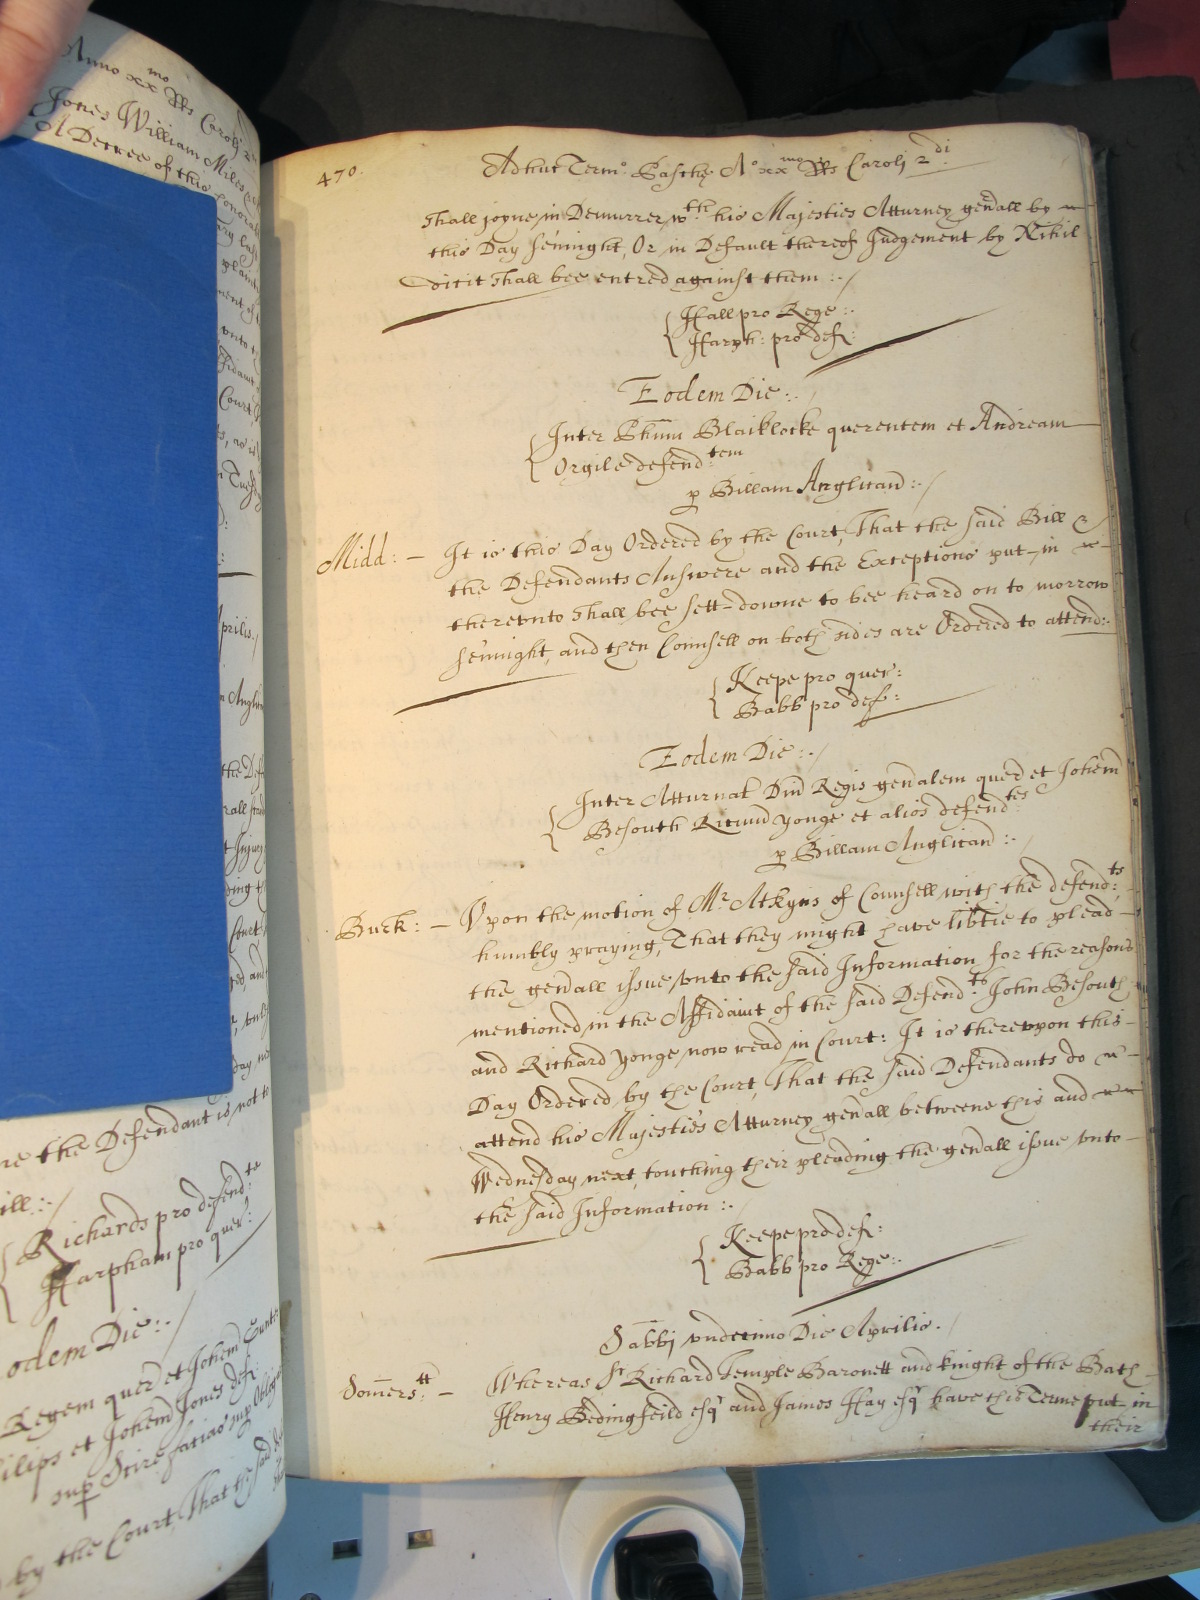 Anno xx mo R Rs Caroli 2
Jones William Miles
A Decree of this honora
470.
Adhuc Term: Pasche A° xx mo R Rs Caroli 2 di
shall joyne in Demurrer wth his Majesties Atturney genall by
this Day sennight, Or in Default thereof Judgement by Nihil
dicit shall bee entred against them :-/
Hall pro Rege :
Harph: pro def:
Eodem Die :-
Inter Phum Blaiklocke querentem et Andream
Orgile defend:tem
p Billam Anglican :-/
Midd: - It is this Day Ordered by the Court, That the said Bill &
the Defendants Answere and the Exceptions put-in
therevnto shall bee sett-downe to bee heard on to morrow
sennight, and then Counsell on both sides are Ordered to attend:-
Keepe pro quer:
Babb pro def:
Eodem Die :-/
Inter Atturnat Dni Regis genalem quer et Johem
Besouth Ricum Yonge et alios defend:tes
p Billam Anglican :-
Buck: - Vpon the motion of Mr Atkyns of Counsell with the defend:ts
humbly praying, That they might have libtie to plead -
the genall issue vnto the said Information, for the reasons
mentioned in the Affidavit of the said Defend:ts John Besouth
and Richard Yonge now read in Court: It is therevpon this -
Day Ordered by the Court, That the said Defendants do
attend his Majesties Atturney genall betweene this and
Wednesday next, touching their pleading the genall issue vnto -
the said Information :-
Keepe pro def:
Babb pro Rege :-
Sabbi vndecimo Die Aprilis. /
Somers:tt - Whereas Sr Richard Temple Baronett and knight of the Bath -
Henry Bedingfeild esqr and James Hay esqr have this Terme put in
their
re the Defendant is not to
ill :-/
Richards pro defend:te
Harpham pro quer:
odem Die :-/
Regem quer et Johem
ilips et Johem Jones def:
sup Scire facias sup Obligat
by the Court, That the said